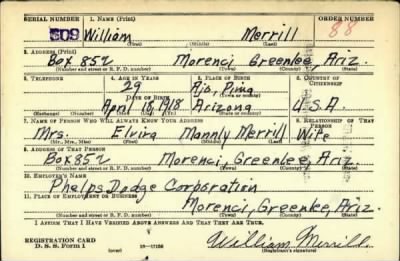 SERIAL NUMBER 1. NAME (Print) ORDER NUMBER
609 William Merrill 88
(First) (Middle) (Last)
2. ADDRESS (Print)
Box 852 Morenci Greenlee, Ariz.
(Number and street or R. F. D. number) (Town) (County) (State)
3. TELEPHONE 4. AGE IN YEARS 5. PLACE OF BIRTH 6. COUNTRY OF CITIZENSHIP
Ajo, Pima
(Town or county)
DATE OF BIRTH
April 18 1918 Arizona U.S.A.
(Mo.) (Day) (Yr.) (State or country)
7. NAME OF PERSON WHO WILL ALWAYS KNOW YOUR ADDRESS 8. RELATIONSHIP OF THAT PERSON
Mrs. Elvira Mannly Merrill Wife
(Mr., Mrs., Miss) (First) (Middle) (Last)
9. ADDRESS OF THAT PERSON
Box 852 Morenci, Greenlee, Ariz.
(Number and street or R. F. D. number) (Town) (County) (State)
10. EMPLOYER'S NAME
Phelps Dodge Corporation
11. PLACE OF EMPLOYMENT OR BUSINESS
Morenci, Greenlee, Ariz.
(Number and street or R. F. D. number) (Town) (County) (State)
I AFFIRM THAT I HAVE VERIFIED ABOVE ANSWERS AND THAT THEY ARE TRUE.
REGISTRATION CARD
D. S. S. Form 1 (over) 16—17105 William Merrill
(Registrant's signature)